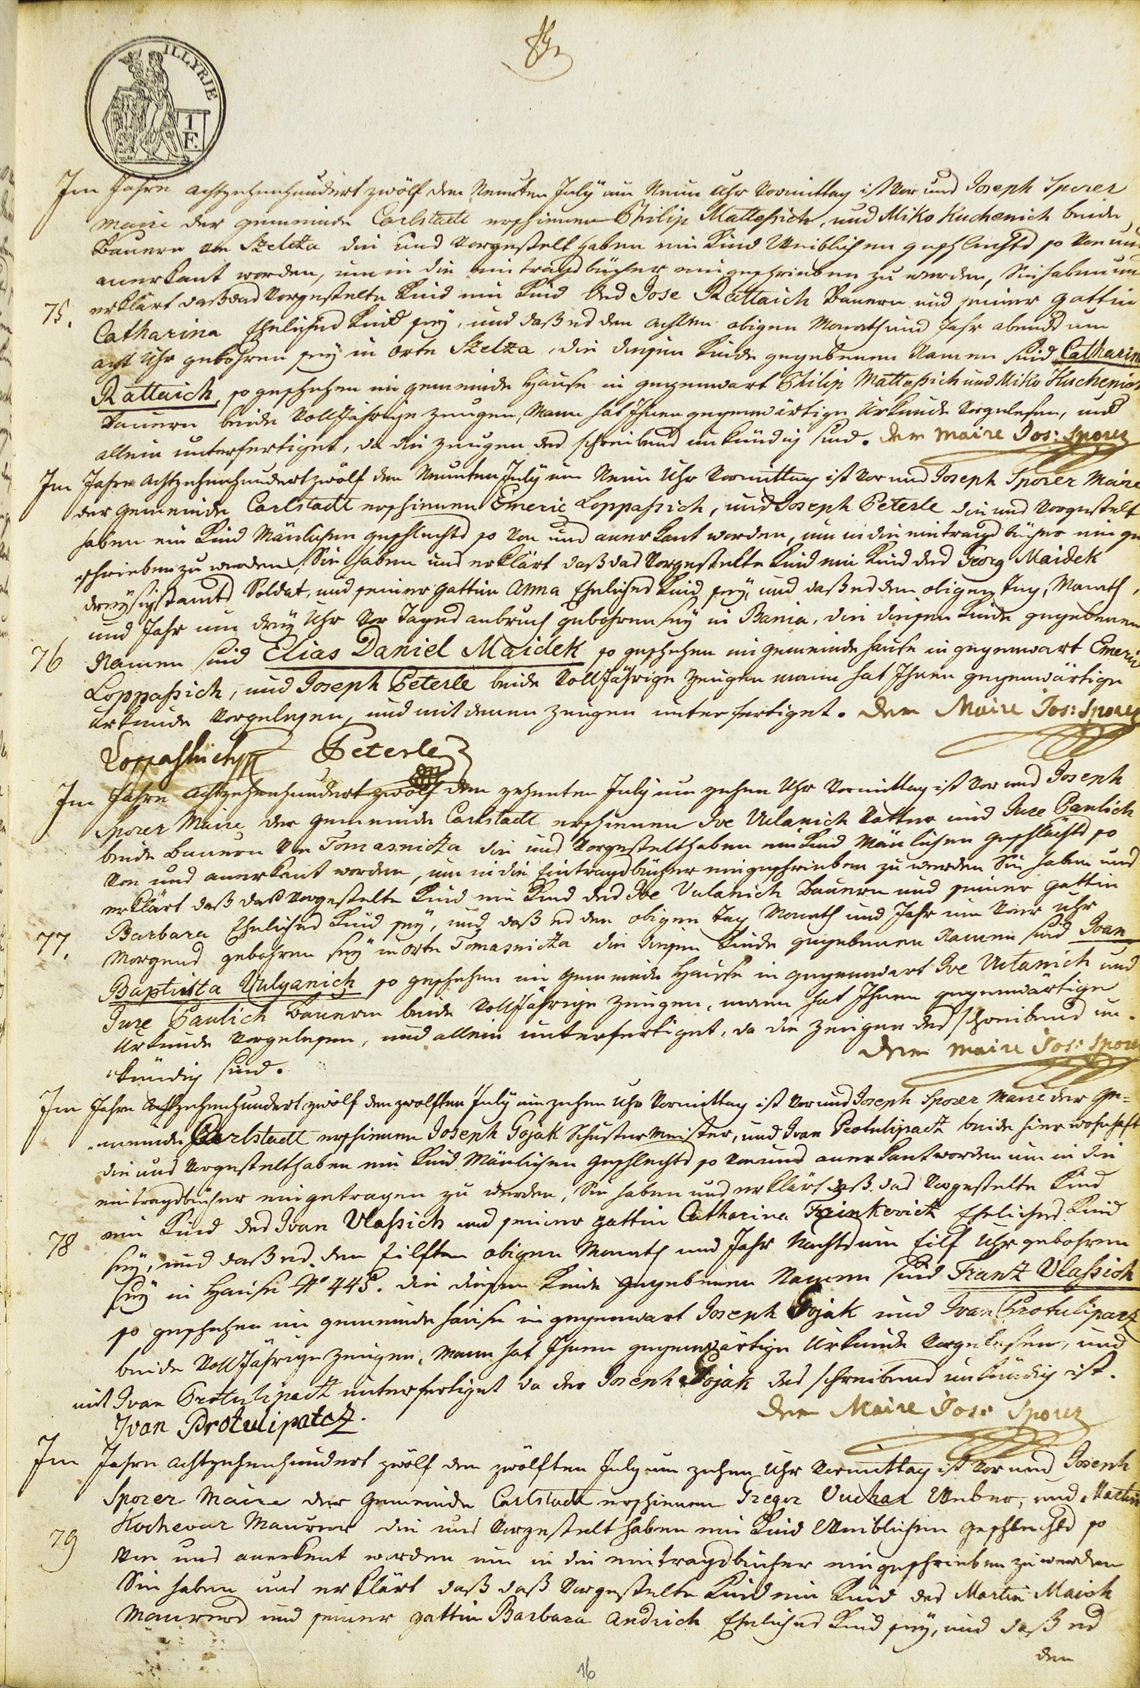 ILLYRIE
T E
Im Jahre achtzehenhundert zwölf den Neunten July um Neun Uhr Vormittag ist vor uns Joseph Sporer
Maire der gemeinde Carlstadt erschienen Philip Mattessich, und Miko Kuchenich beide
Bauern von Stelza die uns vorgestelt haben ein Kind Weiblichen geschlechts so von uns
anerkant worden, um in die eintragsbücher eingeschrieben zu werden, Sie haben uns
75. erklärt daß das vorgestelte Kind ein Kind des Jose Rattaich Bauern und seiner gattin
Catharina Eheliches Kind sey, und daß es den achten obigen Monath und Jahr abends um
acht Uhr gebohren sey in Orte Stelza, die diesem Kinde gegebenen Namen sind Catharina
Rattaich, so geschehen im gemeinde Hause in gegenwart Philip Mattessich und Miko Kuchenich
Bauern beide Volljährige zeugen, Mann hat Ihnen gegenwärtige Urkunde vorgelesen, und
allein unterfertiget, da die zeugen des schreibens unkündig sind. Der Maire Jos: Sporer
Im Jahre achtzehenhundert zwölf den Neunten July um Neun Uhr Vormittag ist vor uns Joseph Sporer Maire
der gemeinde Carlstadt erschienen Emeric Loppassich, und Joseph Peterle die uns vorgestelt
haben ein Kind Mänlichen geschlechts so von uns anerkant worden, um in die eintrags bücher einge
schrieben zu werden. Sie haben uns erklärt daß das vorgestelte Kind ein Kind des Georg Maidek
Soldat, und seiner gattin Anna Ehelichen Kind sey, und daß es den obigen tag, Monath,
und Jahr um drey Uhr vor Tages anbruch gebohren sey in Bania, die diesem Kinde gegebenen
76 Namen sind Elias Daniel Maidek so geschehen im gemeinde hause in gegenwart Emeric
Loppassich, und Joseph Peterle beide Volljährige zeugen mann hat Ihnen gegenwärtige
Urkunde vorgelesen, und mit denen zeugen unterfertiget. Der Maire Jos: Sporer
Loppassich Peterle
Im Jahre achtzehenhundert zwölf den zehenten July um zehen Uhr Vormittag ist vor uns Joseph
Sporer Maire der gemeinde Carlstadt erschienen Ive Vulanich Vatter und Jure Paulich
beide Bauern von Tomasnicza die uns vorgestelt haben ein Kind Mänlichen geschlächts so
von uns anerkant worden, um in die Eintragsbücher eingeschrieben zu werden Sie haben uns
erklärt daß das vorgestelte Kind ein Kind des Ive Vulanich Bauern und seiner gattin
Barbara Ehelichen Kind sey, und daß es den obigen tag Monath und Jahr um Vier Uhr
77. Morgens gebohren sey in Orte Tomasnicza die diesem Kinde gegebenen Namen sind Ivan
Baptista Vulyanich so geschehen im gemeinde Hause in gegenwart Ive Vulanich und
Jure Paulich Bauern beide Volljährige zeugen, mann hat Ihnen gegenwärtige
Urkunde vorgelesen, und allein unterfertiget, da die zeugen des schreibens un-
kündig sind. Der Maire Jos: Sporer
Im Jahre achtzehenhundert zwölf den zwölften July um zehen Uhr Vormittag ist vor uns Joseph Sporer Maire der Ge-
meinde Carlstadt erschienen Joseph Gojak Schuster Meister, und Ivan Protulipacz beide hier wohnhaft
die uns vorgestelt haben ein Kind Mänlichen geschlechts so von uns anerkant worden um in die
eintragsbücher eingetragen zu werden, Sie haben uns erklärt daß das vorgestelte Kind
ein Kind des Ivan Vlassich und seiner gattin Catharina Ehelichen Kind
78 sey, und daß es den Eilften obigen Monath und Jahr Nachts um Eilf Uhr gebohren
sey in Hause No 445. die diesem Kinde gegebenen Namen sind Frantz Vlassich
so geschehen im gemeinde hause in gegenwart Joseph Gojak und Ivan Protulipacz
beide Volljährige zeugen, Mann hat Ihnen gegenwärtige Urkunde vorgelesen, und
mit Ivan Protulipacz unterfertiget da der Joseph Gojak des schreibens unkündig ist.
Ivan Protulipatcz. Der Maire Jos: Sporer
Im Jahre achtzehenhundert zwölf den zwölften July um zehen Uhr Vormittag ist vor uns Joseph
Sporer Maire der gemeinde Carlstadt erschienen Gregor Vuchar Weber, und Martin
Kochevar Maurer die uns vorgestelt haben ein Kind Weiblichen geschlechts so
79 von uns anerkant worden um in die eintragsbücher eingeschrieben zu werden
Sie haben uns erklärt daß daß vorgestelte Kind ein Kind des Martin Maich
Maurers und seiner gattin Barbara Andrich Ehelichen Kind sey, und daß es
den
16